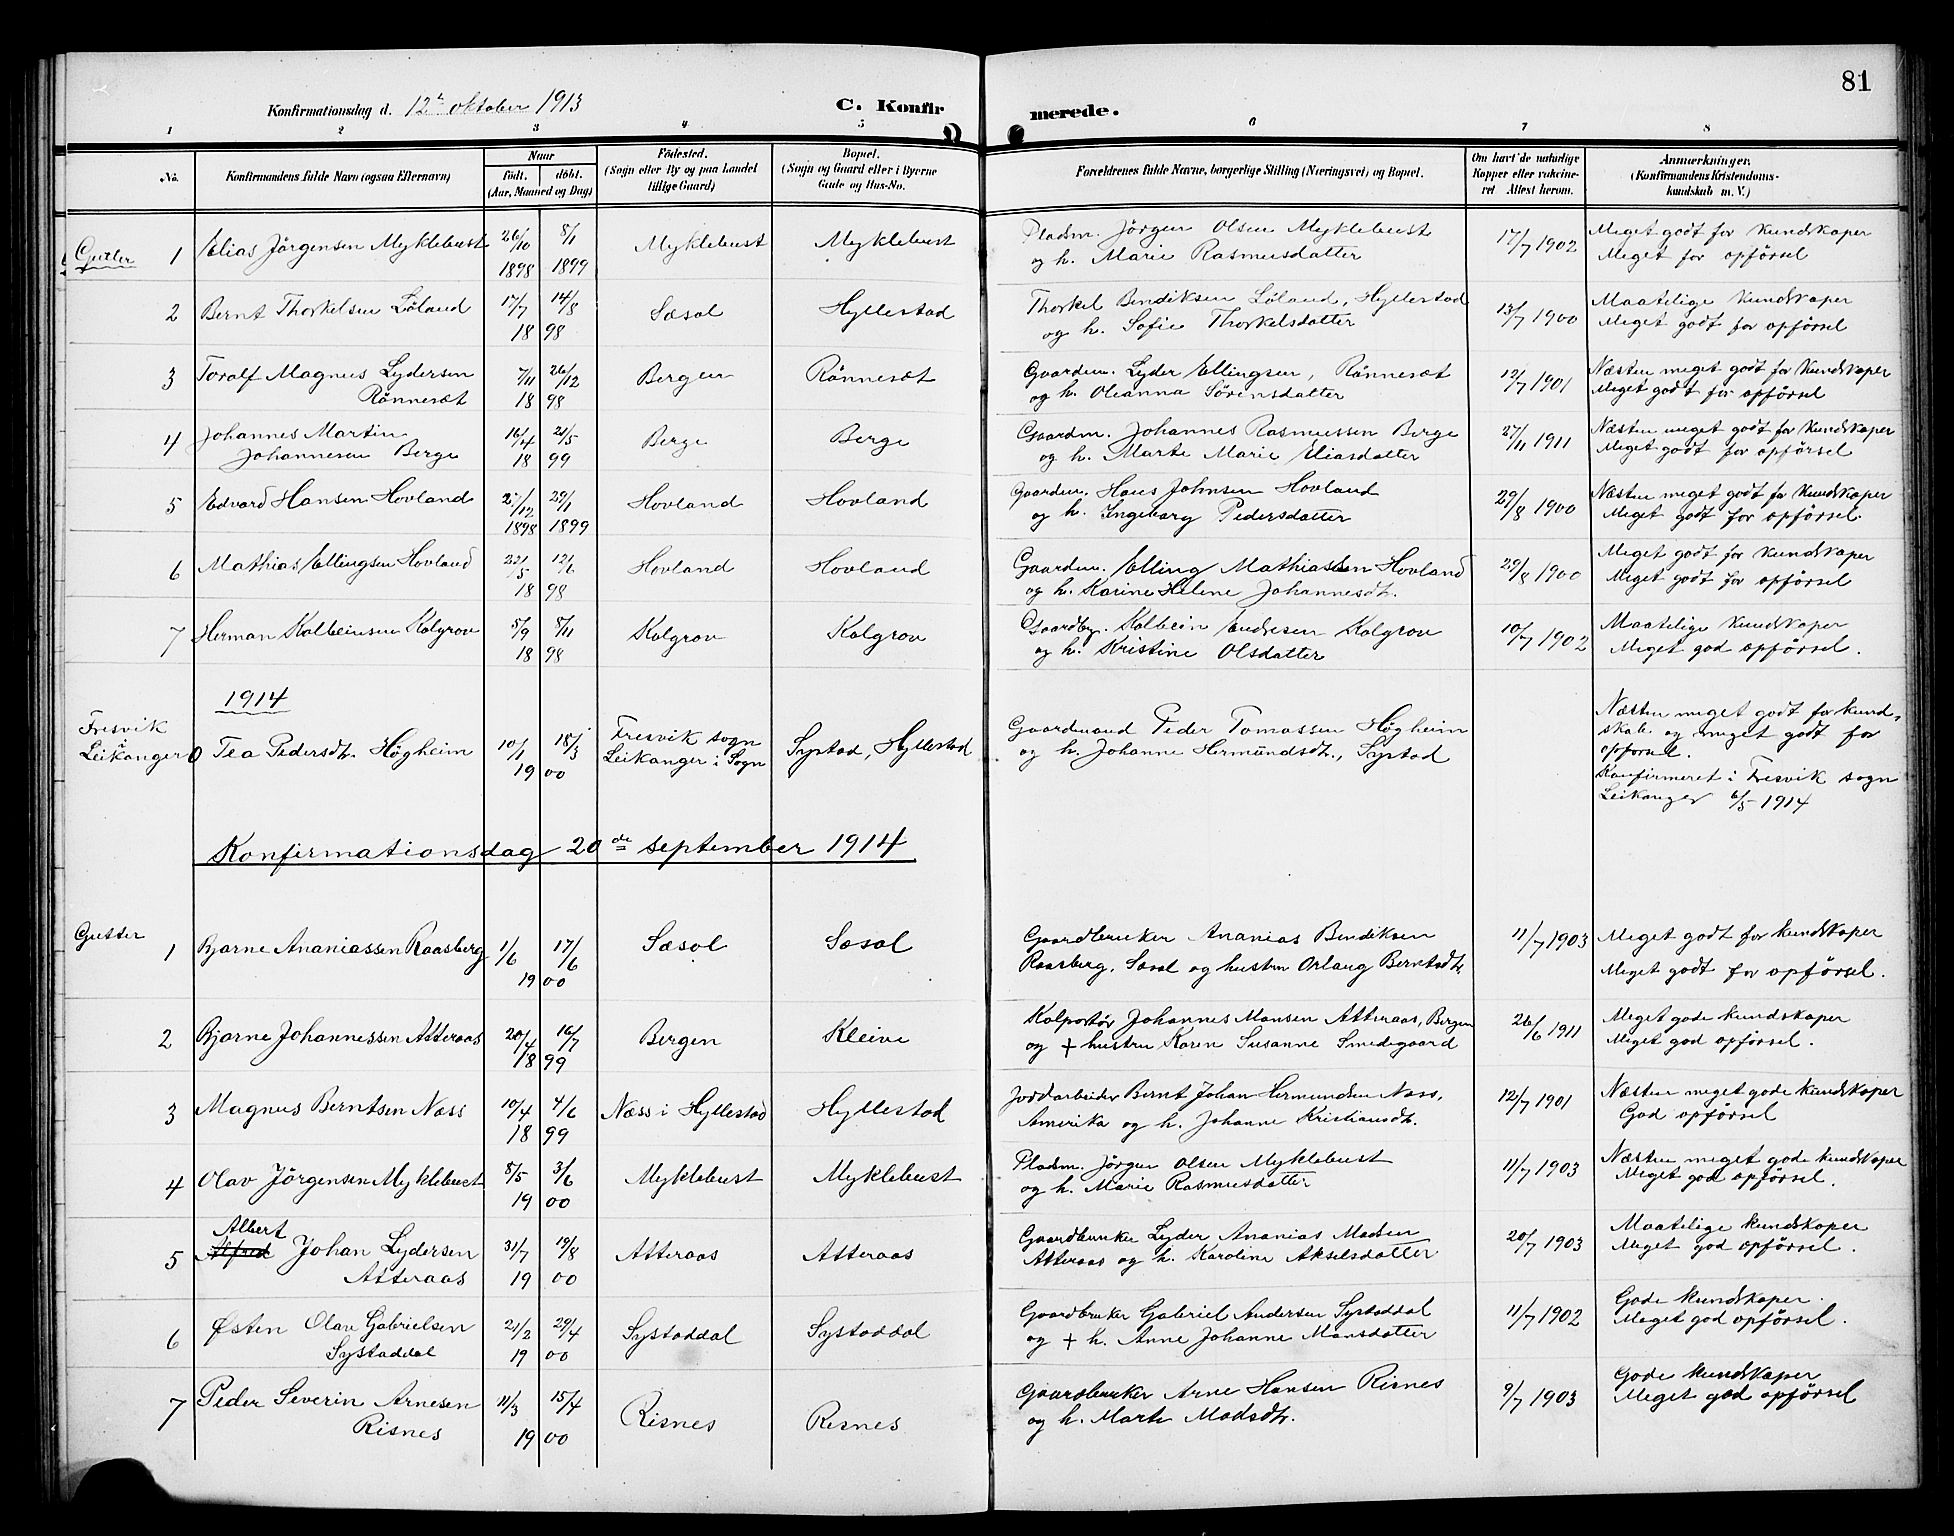 81
Konfirmationsdag d. 12te oktober 1913
C. Konfirmerede.
1 2 3 4 5 6 7 8
No.
Konfirmandens fulde Navn (ogsaa Efternavn)
Naar
født. døbt.
(Aar, Maaned og Dag)
Födested.
(Sogn eller By og paa Landet
tillige Gaard)
Bopæl.
(Sogn og Gaard eller i Byerne
Gade og Hus-No.
Forældrenes fulde Navne, borgerlige Stilling (Næringsvei) og Bopæl.
Om havt de naturlige
Kopper eller vakcine-
ret Attest herom.
Anmærkninger.
(Konfirmandens Kristendoms-
kundskab m. V.)
Gutter 1 Elias Jörgensen Myklebust 26/10 1898 8/1 1899 Myklebust Myklebust
Pladsm. Jörgen Olsen Myklebust
og h. Marie Rasmusdatter
17/7 1902
Meget godt for kundskaper
Meget for opförsel
2 Bernt Thorkelsen Löland 17/7 14/8 1898 Sæsol Hyllestad
Thorkel Bendiksen Löland, Hyllestad
og h. Sofie Thorkelsdatter
13/7 1900
Maatelige kundskaper
Meget godt for opförsel
3 Toralf Magnus Lydersen
Rönnesæt
7/11 26/12 1898 Bergen Rönnesæt
Gaardm. Lyder Ellingsen, Rönnesæt
og h. Oleanna Sörensdatter
12/7 1901
Næsten meget godt for kundskaper
Meget godt for opförsel
4 Johannes Martin
Johannesen Berge
16/4 21/5 1899 Berge Berge
Gaardm. Johannes Rasmussen Berge
og h. Marte Marie Eliasdatter
27/11 1911
Næsten meget godt for kundskaper
Meget godt for opförsel
5 Edvard Hansen Hovland /12 1898 29/1 1899 Hovland Hovland
Gaardm. Hans Johnsen Hovland
og h. Ingeborg Pedersdatter
29/8 1900
Næsten meget godt for kundskaper
Meget godt for opförsel.
6 Mathias Ellingsen Hovland 22/5 12/6 1898 Hovland Hovland
Gaardm. Elling Mathiassen Hovland
og h. Karine Helene Johannesdt.
29/8 1900
Meget godt for kundskaper
Meget godt for opförsel
7 Herman Kolbeinsen Kolgrov 5/9 8/11 1898 Kolgrov Kolgrov
Gaardbr. Kolbein Endresen Kolgrov
og h. Kristine Olsdatter
10/7 1902
Maatelige kundskaper
Meget god opförsel.
1914
Fresvik
i
Leikanger 0 Tea Pedersdt. Högheim 10/1 18/3 1900
Fresvik sogn
Leikanger i Sogn
Systad, Hyllestad
Gaardmand Peder Tomassen Högheim
og h. Johanne Hermundsdt., Systad
Næsten meget godt for kund-
skab og meget godt for
opförsel.
Konfirmeret i Fresvik sogn
Leikanger 6/5 1914
Konfirmationsdag 20de september 1914
Gutter 1 Bjarne Ananiassen Raasberg 1/6 17/6 1900 Sæsol Sæsol
Gaardbruker Ananias Bendiksen
Raasberg, Sæsol og hustru Orlaug Berntsdt.
11/7 1903
Meget godt for kundskaper
Meget godt for opförsel.
2 Bjarne Johannessen Atteraas 20/4 16/7 1899 Bergen Kleive
Kolportör Johannes Monsen Atteraas, Bergen
og + hustru Karen Susanne Smedegaard
26/6 1911
Meget gode kundskaper
Meget god opförsel.
3 Magnus Berntsen Næss 10/4 4/6 1899 Næss i Hyllestad Hyllestad
Jordarbeider Bernt Johan Hermundsen Næss,
Amerika og h. Johanne Kristiansdt.
12/7 1901
Næsten meget gode kundskaper
God opförsel
4 Olav Jörgensen Myklebust 8/5 3/6 1900 Myklebust Myklebust
Pladsm. Jörgen Olsen Myklebust
og h. Marie Rasmusdatter
11/7 1903
Næsten meget gode kundskaper
Meget god opförsel.
Albert
5 Alfred Johan Lydersen
Atteraas
31/7 19/8 1900 Atteraas Atteraas
Gaardbruker Lyder Ananias Madsen
Atteraas og h. Karoline Akselsdatter
20/7 1903
Maatelige kundskaper
Meget god opförsel.
6 Østen Olav Gabrielsen
Systaddal
21/2 29/4 1900 Systaddal Systaddal
Gaardbruker Gabriel Andersen Systaddal
og + h. Anne Johanne Monsdatter
11/7 1902
Gode kundskaper.
Meget god opförsel.
7 Peder Severin Arnesen
Risnes
11/3 15/4 1900 Risnes Risnes
Gaardbruker Arne Hansen Risnes
og h. Marte Madsdt.
9/7 1903
Gode kundskaper
Meget god opförsel